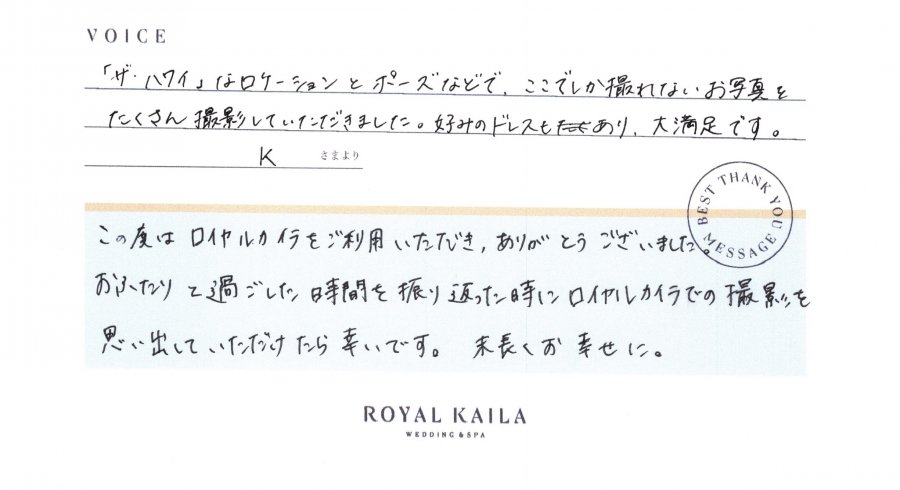 VOICE
「ザ・ハワイ」なロケーションとポーズなどで、ここでしか撮れないお写真を
たくさん撮影していただきました。好みのドレスもあり、大満足です。
K さまより
BEST THANK YOU MESSAGE
この度はロイヤルカイラをご利用いただき、ありがとうございました。
おふたりで過ごした時間を振り返った時にロイヤルカイラでの撮影を
思い出していただけたら幸いです。 末長くお幸せに。
ROYAL KAILA
WEDDING & SPA